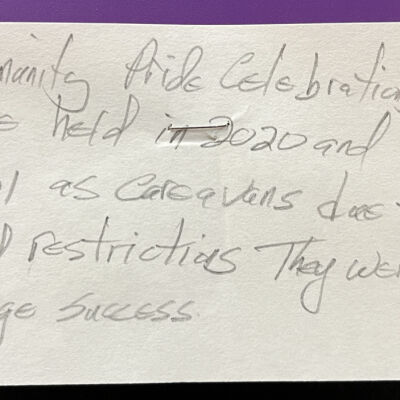 manity Pride Celebration
e held in 2020 and
1 as Careavans due
restrictins They wer
ge success.